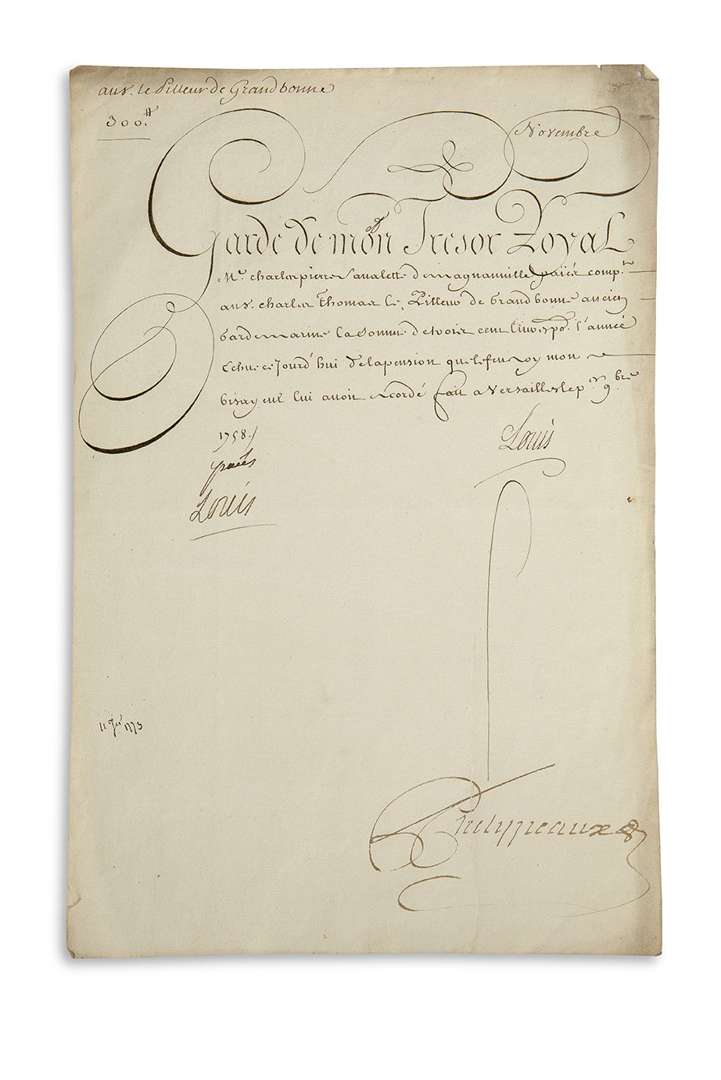 au s. le Pilleur de Grandbonne
300.tt
Novembre
Garde de mon Tresor Royal
Me. charles pierre Savalette de magnanville paiés compt.
au s. charles Thomas le Pilleur de Grandbonne ancien
Garde marine la Somme de trois cent livres po. l'année
Echue ce jourd'hui de la pension que le feu roy mon
bisayeul lui avoit acordé fait a Versailles le pr. 9.bre
1758./.
Louis
paiés
Louis
1773
Phelypeaux